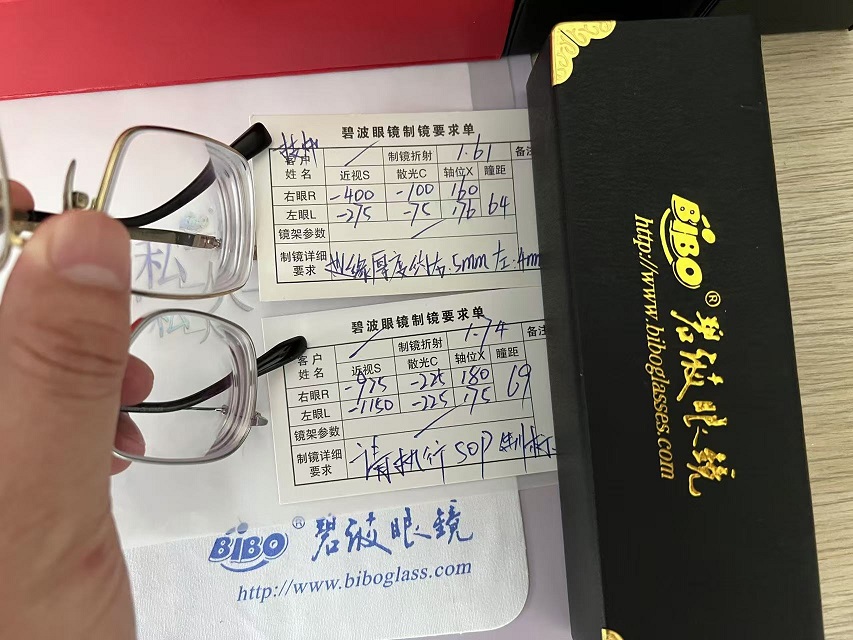 碧波眼镜制镜要求单
客户
姓名
制镜折射 1.61 备注
近视S 散光C 轴位X 瞳距
右眼R -400 -100 160 64
左眼L -275 -75 176
镜架参数
制镜详细
要求
边缘厚度约右.5mm 左.4mm
碧波眼镜制镜要求单
客户
姓名
制镜折射 1.74 备注
近视S 散光C 轴位X 瞳距
右眼R -975 -225 180 69
左眼L -1150 -225 175
镜架参数
制镜详细
要求
请执行SOP
BiBO® 碧波眼镜
http://www.biboglass.com
BiBO® 碧波眼镜
http://www.biboglasses.com